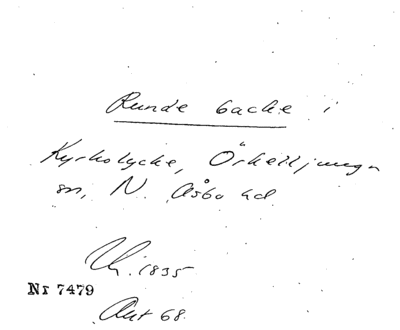 Runde backe i
Kyrkolycke, Örkelljunga
sn, N. Åsbo hd
Uk. 1835
Nr 7479
Akt 68.